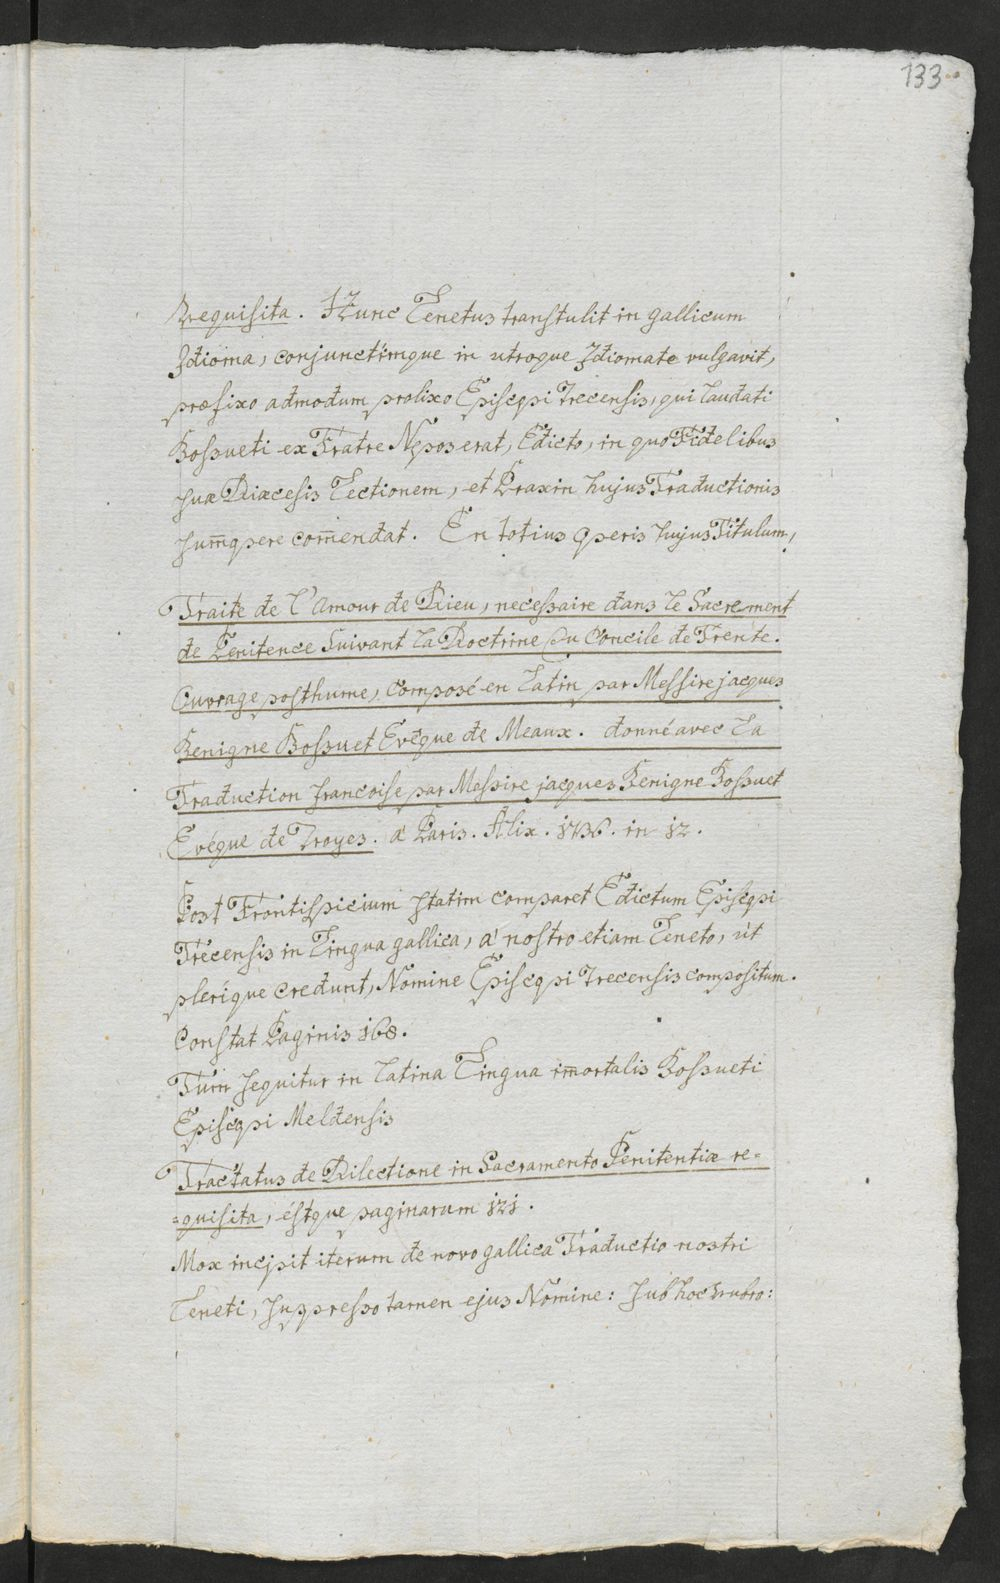 133.
Requisita. Hunc Tenetus transtulit in gallicum
Idioma, conjunctimque in utroque Idiomate vulgavit,
præfixo admodum prolixo Episcopi Trecensis, qui laudati
Bossueti ex Fratre Nepos erat, Edicto, in quo Fidelibus
suæ Diæcesis Lectionem, et Praxin hujus Traductionis
sum̄opere com̄endat. En totius operis hujus Titulum,
Traite de l'Amour de Dieu, necessaire dans le Sacrement
de Penitence suivant la Doctrine du Concile de Trente.
Ouvrage posthume, composé en Latin par Messire jacques
Benigne Bossuet Evêque de Meaux. donné avec la
Traduction francoise par Messire jacques Benigne Bossuet
Evéque de Troyes. a' Paris. Alix. 1736. in 12.
Post Frontispicium statim comparet Edictum Episcopi
Trecensis in Lingua gallica, a' nostro etiam Teneto, ut
plerique credunt, Nomine Episcopi Trecensis compositum.
Constat Paginis 168.
Tum sequitur in Latina Lingua im̄ortalis Bossueti
Episcopi Meldensis
Tractatus de Dilectione in Sacramento Penitentiæ re=
=quisita, éstque paginarum 121.
Mox incipit iterum de novo gallica Traductio nostri
Teneti, suppresso tamen ejus Nomine: sub hoc rubro: